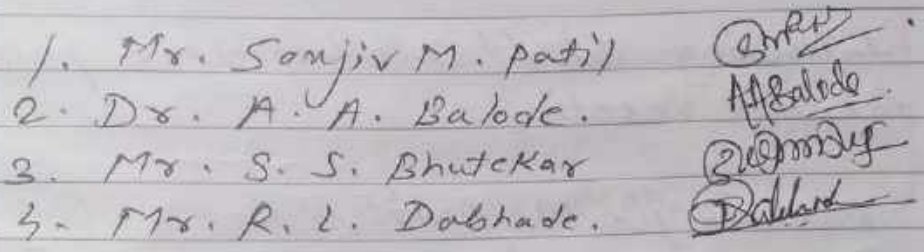 1. Mr. Sanjiv M. Patil
2. Dr. A. A. Balode. AABalode
3. Mr. S. S. Bhutekar
4. Mr. R. L. Dabhade.